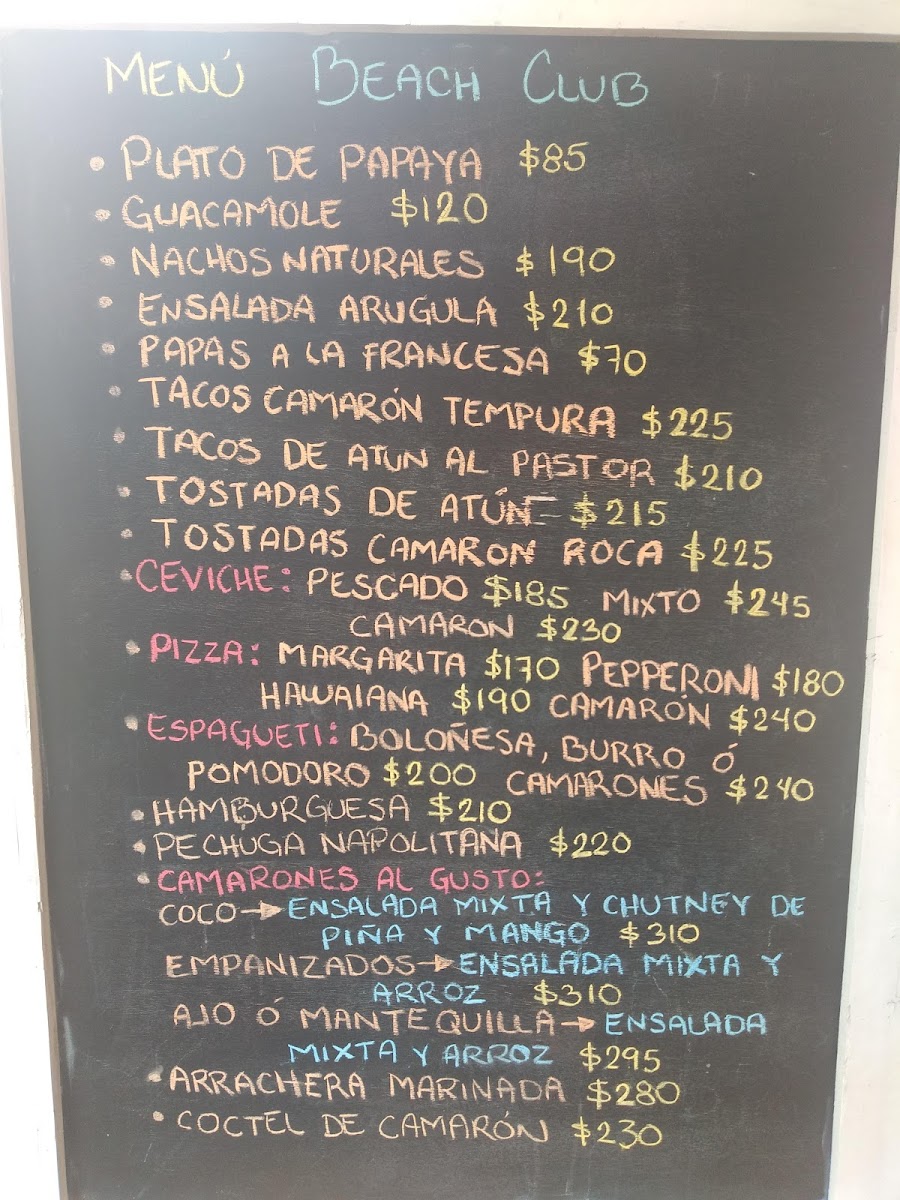 MENÚ BEACH CLUB
• PLATO DE PAPAYA $85
• GUACAMOLE $120
• NACHOS NATURALES $190
• ENSALADA ARUGULA $210
• PAPAS A LA FRANCESA $70
• TACOS CAMARÓN TEMPURA $225
• TACOS DE ATUN AL PASTOR $210
• TOSTADAS DE ATÚN $215
• TOSTADAS CAMARON ROCA $225
• CEVICHE: PESCADO $185 MIXTO $245
CAMARON $230
• PIZZA: MARGARITA $170 PEPPERONI $180
HAWAIANA $190 CAMARÓN $240
• ESPAGUETI: BOLOÑESA, BURRO Ó
POMODORO $200 CAMARONES $240
• HAMBURGUESA $210
• PECHUGA NAPOLITANA $220
• CAMARONES AL GUSTO:
COCO → ENSALADA MIXTA Y CHUTNEY DE
PIÑA Y MANGO $310
EMPANIZADOS → ENSALADA MIXTA Y
ARROZ $310
AJO Ó MANTEQUILLA → ENSALADA
MIXTA Y ARROZ $295
• ARRACHERA MARINADA $280
• COCTEL DE CAMARÓN $230